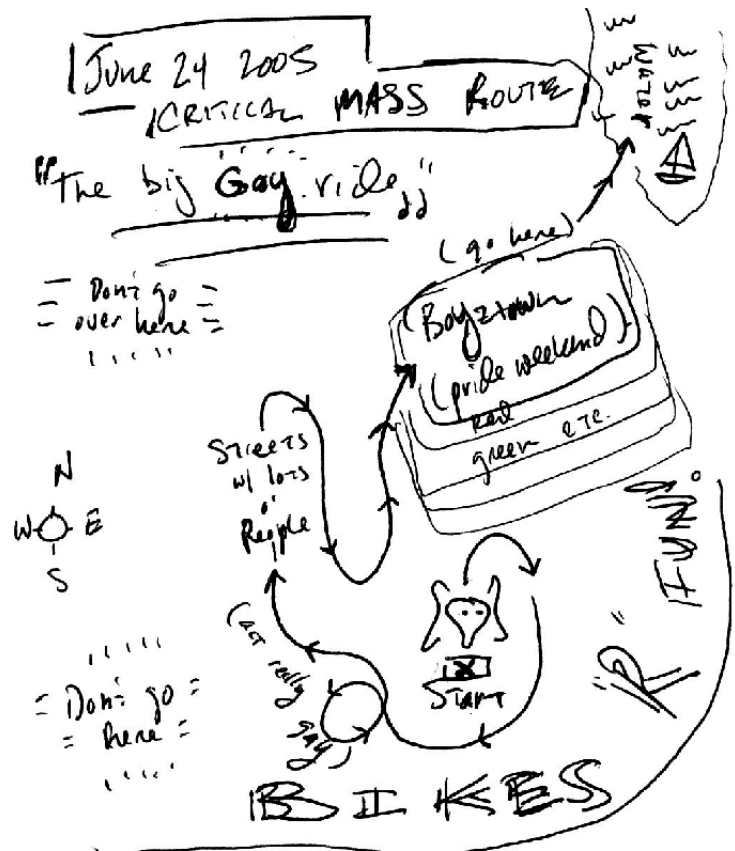 June 24 2005
CRITICAL MASS ROUTE
"The big Gay ride"
Water
(go here)
Don't go
over here
Boyztown
(pride weekend)
red
green etc.
Streets
w/ lots
o'
People
N
W E
S
(act really
gay)
X
Start
Don't go
here
BIKES
"R"
FUN!